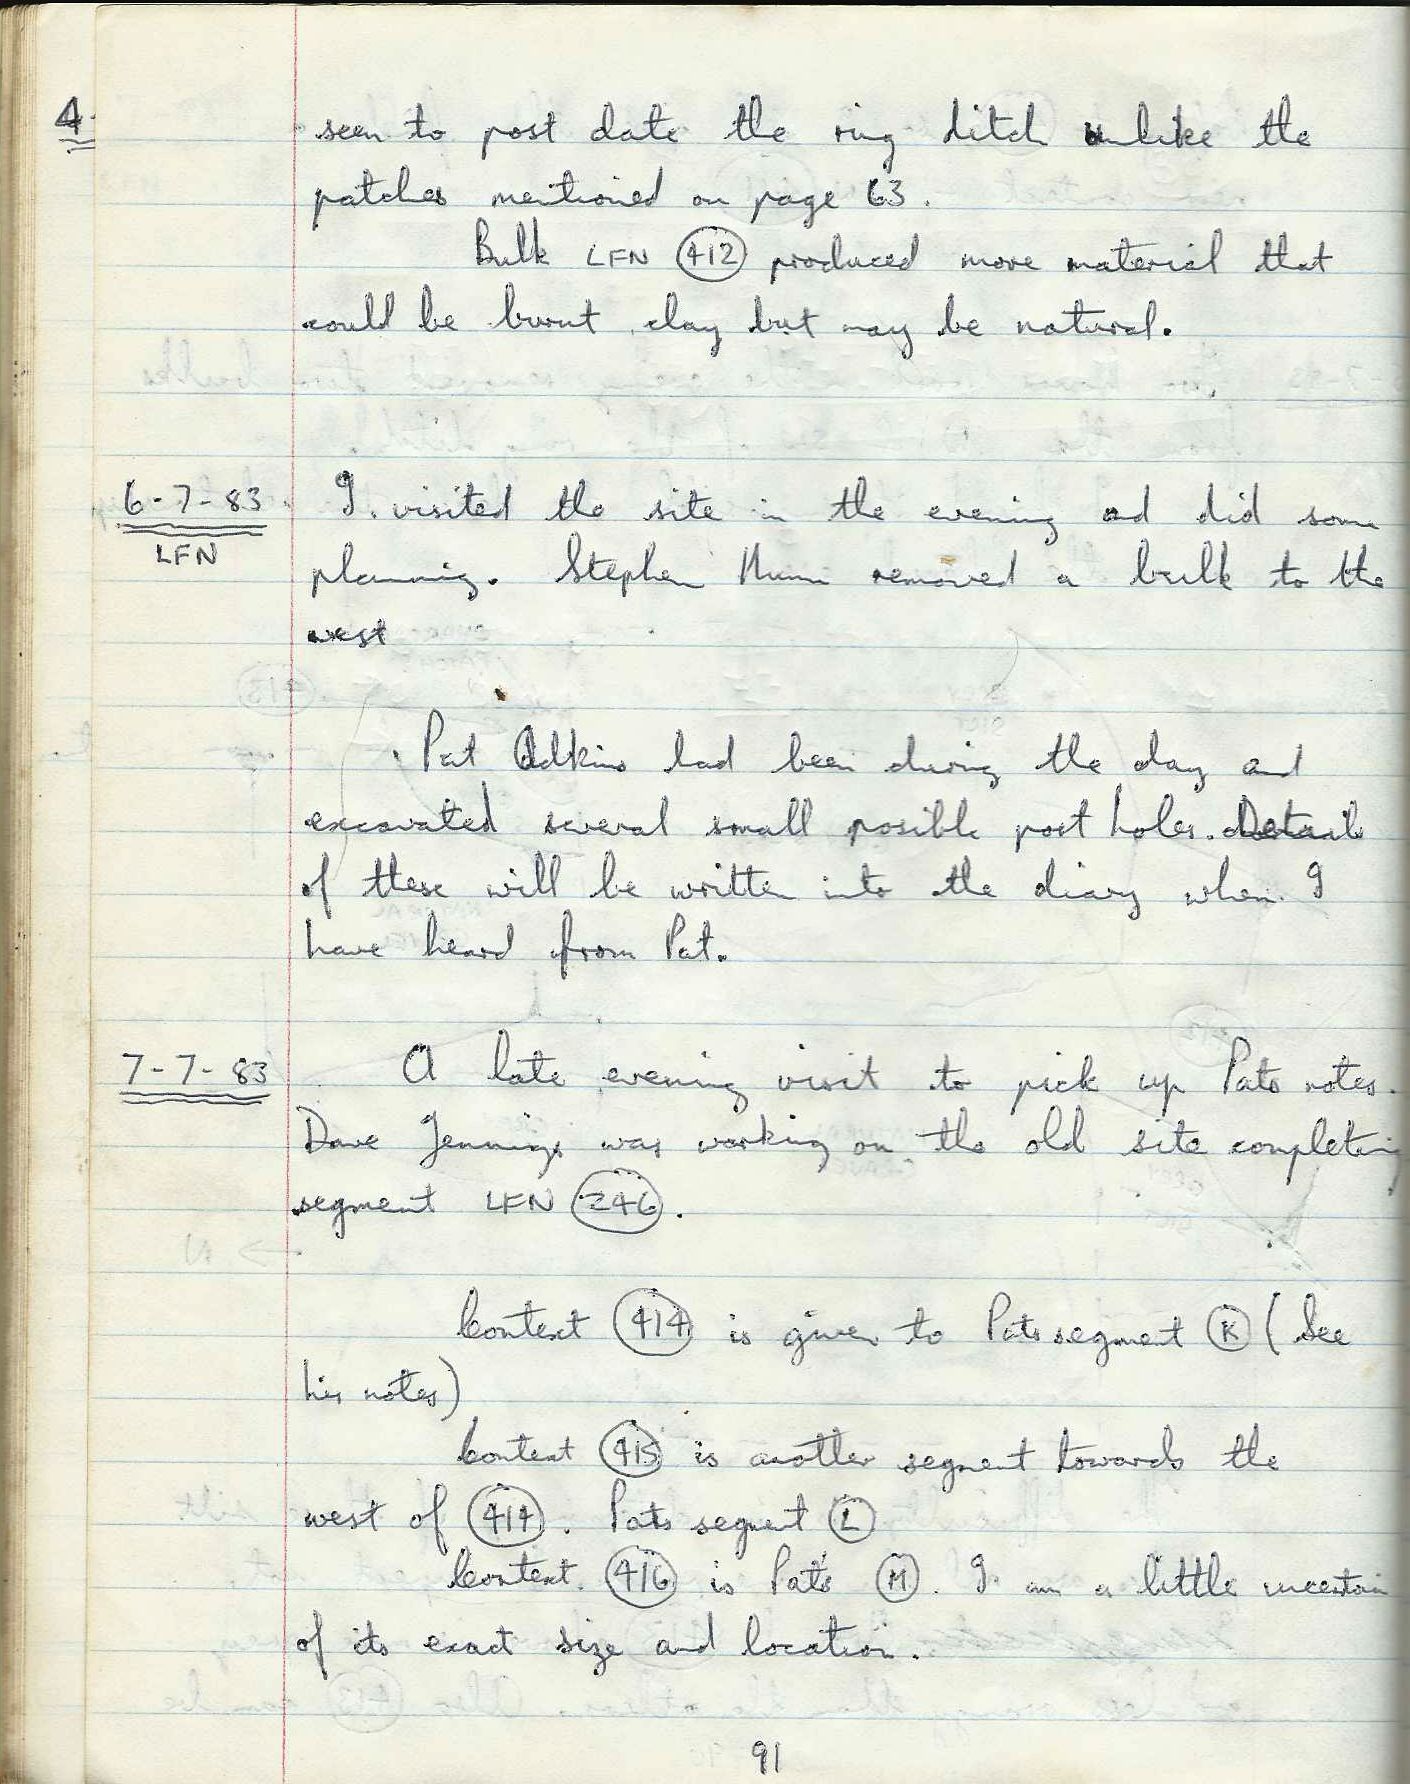 4.
seen to post date the ring ditch unlike the
patches mentioned on page 63.
Bulk LFN 412 produced more material that
could be burnt clay but may be natural.
6-7-83
LFN
I visited the site in the evening and did some
planning. Stephen removed a bulk to the
west
Pat Adkins had been during the day and
excavated several small posible post holes. Details
of these will be written into the diary when I
have heard from Pat.
7-7-83
A late evening visit to pick up Pats notes.
Dave Jennings was working on the old site completing
segment LFN 246.
Context 414 is given to Pats segment K (See
his notes)
Context 415 is another segment towards the
west of 414. Pats segment L
Context 416 is Pat's M. I am a little uncertain
of its exact size and location.
91